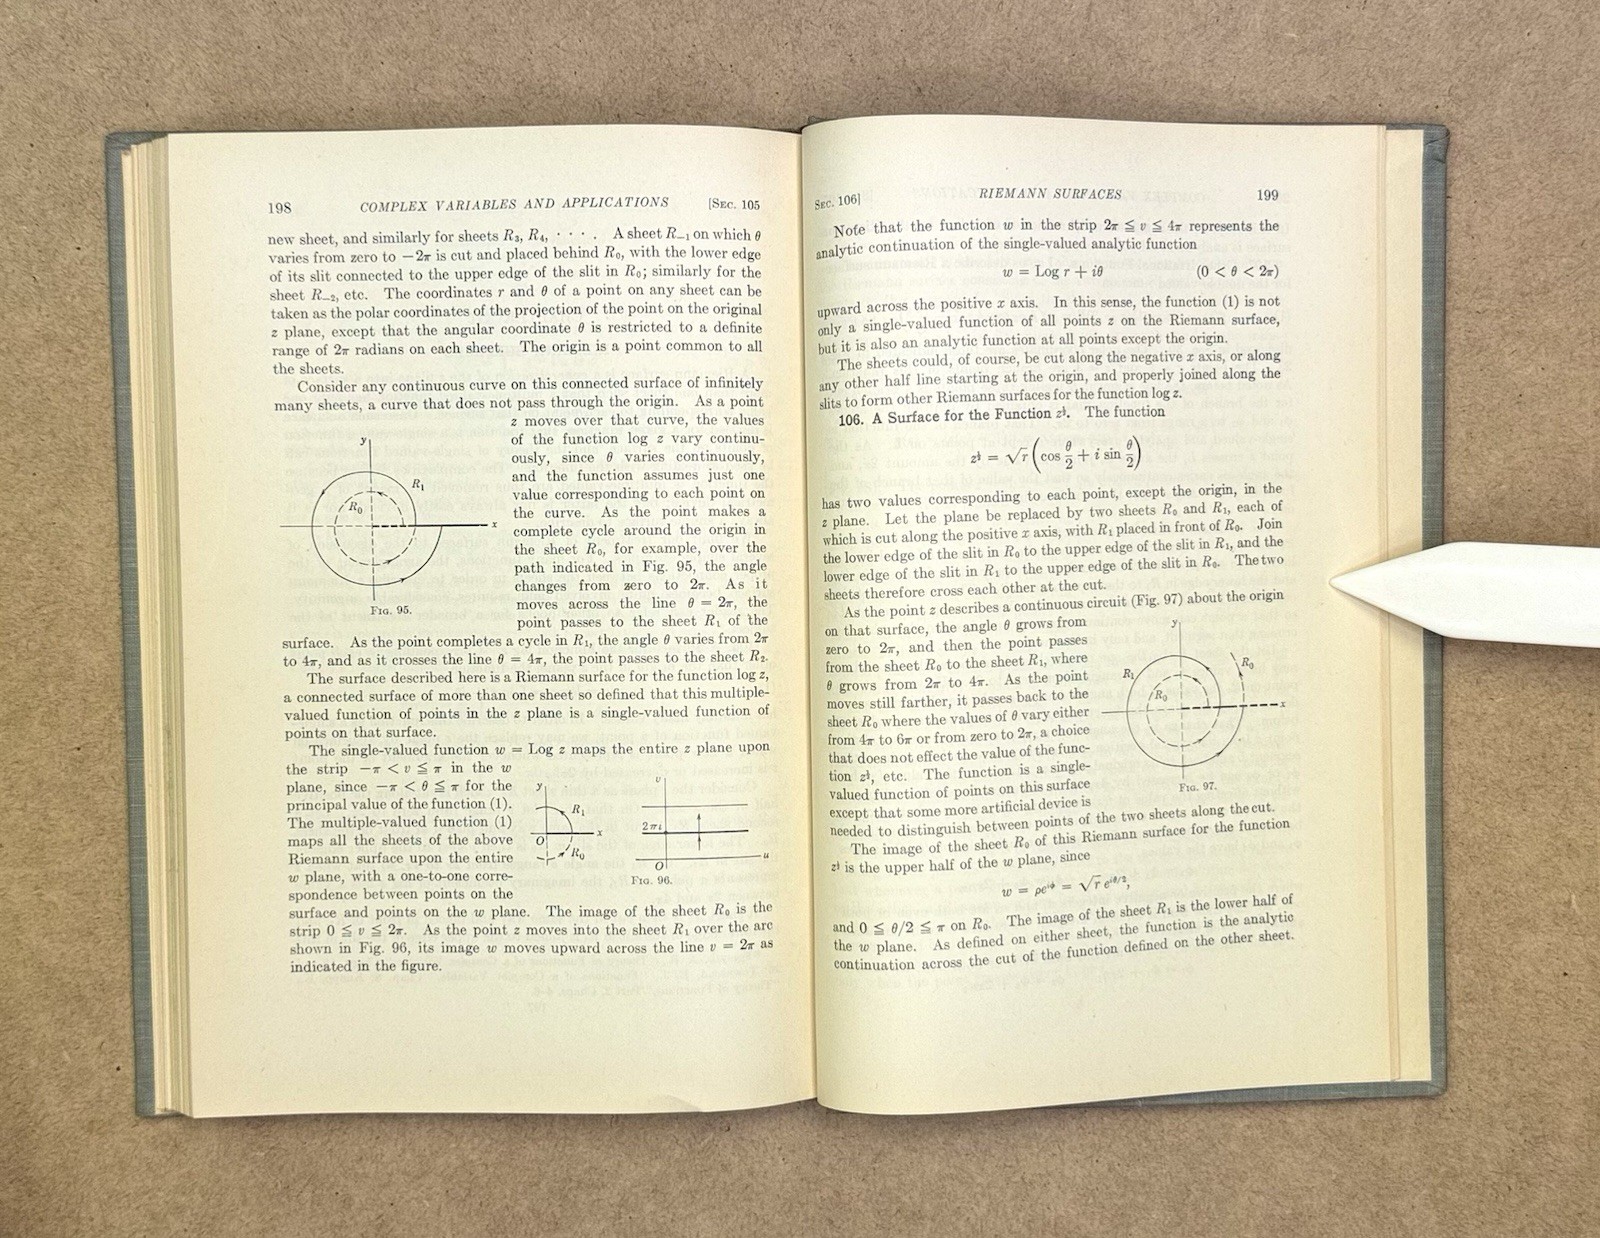 198 COMPLEX VARIABLES AND APPLICATIONS [SEC. 105
new sheet, and similarly for sheets R₃, R₄, · · · . A sheet R₋₁ on which θ
varies from zero to −2π is cut and placed behind R₀, with the lower edge
of its slit connected to the upper edge of the slit in R₀; similarly for the
sheet R₋₂, etc. The coordinates r and θ of a point on any sheet can be
taken as the polar coordinates of the projection of the point on the original
z plane, except that the angular coordinate θ is restricted to a definite
range of 2π radians on each sheet. The origin is a point common to all
the sheets.
Consider any continuous curve on this connected surface of infinitely
many sheets, a curve that does not pass through the origin. As a point
z moves over that curve, the values
of the function log z vary continu-
ously, since θ varies continuously,
and the function assumes just one
value corresponding to each point on
the curve. As the point makes a
complete cycle around the origin in
the sheet R₀, for example, over the
path indicated in Fig. 95, the angle
changes from zero to 2π. As it
moves across the line θ = 2π, the
point passes to the sheet R₁ of the
y
R₁
R₀
x
FIG. 95.
surface. As the point completes a cycle in R₁, the angle θ varies from 2π
to 4π, and as it crosses the line θ = 4π, the point passes to the sheet R₂.
The surface described here is a Riemann surface for the function log z,
a connected surface of more than one sheet so defined that this multiple-
valued function of points in the z plane is a single-valued function of
points on that surface.
The single-valued function w = Log z maps the entire z plane upon
the strip −π < v ≦ π in the w
plane, since −π < θ ≦ π for the
principal value of the function (1).
The multiple-valued function (1)
maps all the sheets of the above
Riemann surface upon the entire
w plane, with a one-to-one corre-
spondence between points on the
y
R₁
x
O
R₀
v
2πi
O
u
FIG. 96.
surface and points on the w plane. The image of the sheet R₀ is the
strip 0 ≦ v ≦ 2π. As the point z moves into the sheet R₁ over the arc
shown in Fig. 96, its image w moves upward across the line v = 2π as
indicated in the figure.
SEC. 106] RIEMANN SURFACES 199
Note that the function w in the strip 2π ≦ v ≦ 4π represents the
analytic continuation of the single-valued analytic function
w = Log r + iθ (0 < θ < 2π)
upward across the positive x axis. In this sense, the function (1) is not
only a single-valued function of all points z on the Riemann surface,
but it is also an analytic function at all points except the origin.
The sheets could, of course, be cut along the negative x axis, or along
any other half line starting at the origin, and properly joined along the
slits to form other Riemann surfaces for the function log z.
106. A Surface for the Function z^½. The function
z^½ = √r (cos θ/2 + i sin θ/2)
has two values corresponding to each point, except the origin, in the
z plane. Let the plane be replaced by two sheets R₀ and R₁, each of
which is cut along the positive x axis, with R₁ placed in front of R₀. Join
the lower edge of the slit in R₀ to the upper edge of the slit in R₁, and the
lower edge of the slit in R₁ to the upper edge of the slit in R₀. The two
sheets therefore cross each other at the cut.
As the point z describes a continuous circuit (Fig. 97) about the origin
on that surface, the angle θ grows from
zero to 2π, and then the point passes
from the sheet R₀ to the sheet R₁, where
θ grows from 2π to 4π. As the point
moves still farther, it passes back to the
sheet R₀ where the values of θ vary either
from 4π to 6π or from zero to 2π, a choice
that does not effect the value of the func-
tion z^½, etc. The function is a single-
valued function of points on this surface
except that some more artificial device is
y
R₁
R₀
R₀
x
FIG. 97.
needed to distinguish between points of the two sheets along the cut.
The image of the sheet R₀ of this Riemann surface for the function
z^½ is the upper half of the w plane, since
w = ρe^{iφ} = √r e^{iθ/2},
and 0 ≦ θ/2 ≦ π on R₀. The image of the sheet R₁ is the lower half of
the w plane. As defined on either sheet, the function is the analytic
continuation across the cut of the function defined on the other sheet.